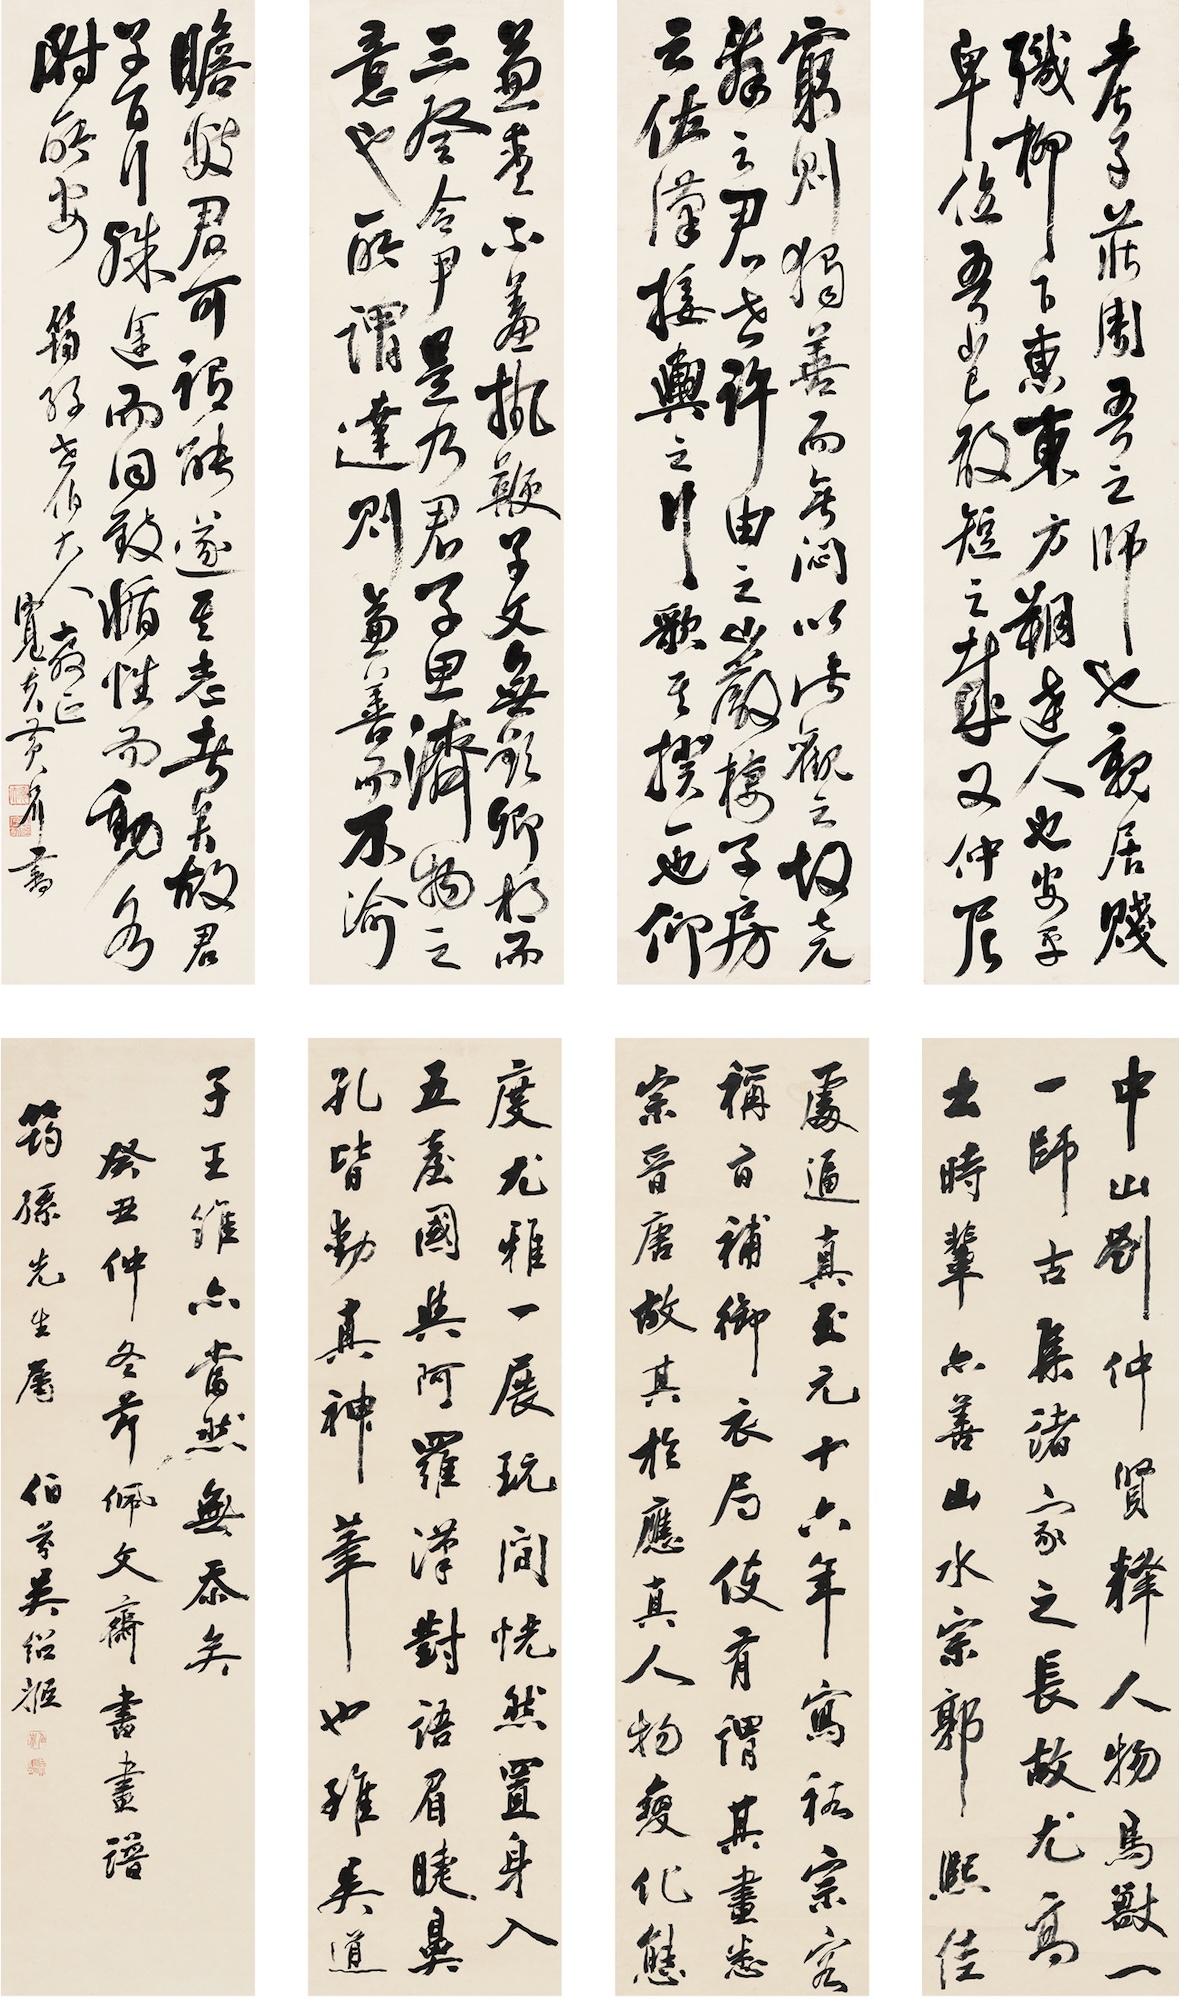 老子莊周吾之師也親居賤
職柳下惠東方朔達人也安乎
卑位吾豈敢短之哉又仲尼
兼愛不羞執鞭子文無欲卿相而
三登令尹是乃君子思濟物之
意也所謂達則兼善而不渝
窮則獨善而無悶以此觀之故堯
舜之君世許由之巖棲子房
之佐漢接輿之行歌其揆一也仰
瞻數君可謂能遂其志者矣故君
子百行殊途而同致循性而動各
附所安
筠孫老伯大人教正
寬夫黃 書
中山劉仲賢釋人物鳥獸一
一師古集諸家之長故尤高
出時輩亦善山水宗郭熙佳
處逼真至元十六年寫裕宗容
稱旨補御衣局使有謂其畫悉
宗晉唐故其於應真人物變化態
度尤雅一展玩間恍然置身入
五臺國與阿羅漢對語眉睫鼻
孔皆動真神筆也雖吳道
子王維亦當然無忝矣
癸丑仲冬節佩文齋書畫譜
筠孫先生屬 伯 吳